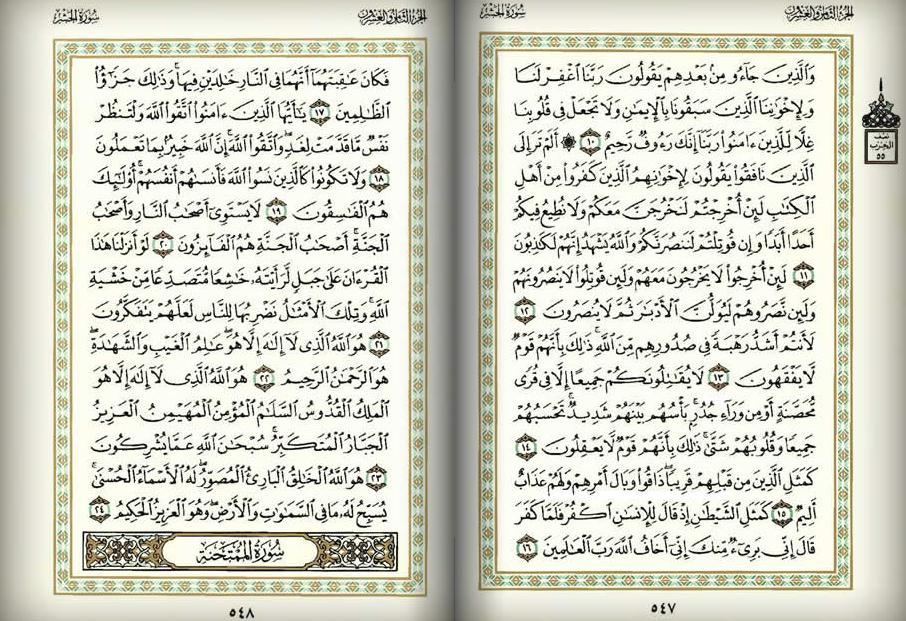 الجزء الثامن والعشرون
سورة الحشر
وَٱلَّذِينَ جَآءُو مِنۢ بَعۡدِهِمۡ يَقُولُونَ رَبَّنَا ٱغۡفِرۡ لَنَا
وَلِإِخۡوَٰنِنَا ٱلَّذِينَ سَبَقُونَا بِٱلۡإِيمَٰنِ وَلَا تَجۡعَلۡ فِي قُلُوبِنَا
غِلّٗا لِّلَّذِينَ ءَامَنُواْ رَبَّنَآ إِنَّكَ رَءُوفٞ رَّحِيمٌ ١٠ ۞ أَلَمۡ تَرَ إِلَى
ٱلَّذِينَ نَافَقُواْ يَقُولُونَ لِإِخۡوَٰنِهِمُ ٱلَّذِينَ كَفَرُواْ مِنۡ أَهۡلِ
ٱلۡكِتَٰبِ لَئِنۡ أُخۡرِجۡتُمۡ لَنَخۡرُجَنَّ مَعَكُمۡ وَلَا نُطِيعُ فِيكُمۡ
أَحَدًا أَبَدٗا وَإِن قُوتِلۡتُمۡ لَنَنصُرَنَّكُمۡ وَٱللَّهُ يَشۡهَدُ إِنَّهُمۡ لَكَٰذِبُونَ
١١ لَئِنۡ أُخۡرِجُواْ لَا يَخۡرُجُونَ مَعَهُمۡ وَلَئِن قُوتِلُواْ لَا يَنصُرُونَهُمۡ
وَلَئِن نَّصَرُوهُمۡ لَيُوَلُّنَّ ٱلۡأَدۡبَٰرَ ثُمَّ لَا يُنصَرُونَ ١٢
لَأَنتُمۡ أَشَدُّ رَهۡبَةٗ فِي صُدُورِهِم مِّنَ ٱللَّهِۚ ذَٰلِكَ بِأَنَّهُمۡ قَوۡمٞ
لَّا يَفۡقَهُونَ ١٣ لَا يُقَٰتِلُونَكُمۡ جَمِيعًا إِلَّا فِي قُرٗى
مُّحَصَّنَةٍ أَوۡ مِن وَرَآءِ جُدُرِۭۚ بَأۡسُهُم بَيۡنَهُمۡ شَدِيدٞۚ تَحۡسَبُهُمۡ
جَمِيعٗا وَقُلُوبُهُمۡ شَتَّىٰۚ ذَٰلِكَ بِأَنَّهُمۡ قَوۡمٞ لَّا يَعۡقِلُونَ ١٤
كَمَثَلِ ٱلَّذِينَ مِن قَبۡلِهِمۡ قَرِيبٗاۖ ذَاقُواْ وَبَالَ أَمۡرِهِمۡ وَلَهُمۡ عَذَابٌ
أَلِيمٞ ١٥ كَمَثَلِ ٱلشَّيۡطَٰنِ إِذۡ قَالَ لِلۡإِنسَٰنِ ٱكۡفُرۡ فَلَمَّا كَفَرَ
قَالَ إِنِّي بَرِيٓءٞ مِّنكَ إِنِّيٓ أَخَافُ ٱللَّهَ رَبَّ ٱلۡعَٰلَمِينَ ١٦
٥٤٧
نصف
الحزب
٥٥
الجزء الثامن والعشرون
سورة الحشر
فَكَانَ عَٰقِبَتَهُمَآ أَنَّهُمَا فِي ٱلنَّارِ خَٰلِدَيۡنِ فِيهَاۚ وَذَٰلِكَ جَزَٰٓؤُاْ
ٱلظَّٰلِمِينَ ١٧ يَٰٓأَيُّهَا ٱلَّذِينَ ءَامَنُواْ ٱتَّقُواْ ٱللَّهَ وَلۡتَنظُرۡ
نَفۡسٞ مَّا قَدَّمَتۡ لِغَدٖۖ وَٱتَّقُواْ ٱللَّهَۚ إِنَّ ٱللَّهَ خَبِيرُۢ بِمَا تَعۡمَلُونَ
١٨ وَلَا تَكُونُواْ كَٱلَّذِينَ نَسُواْ ٱللَّهَ فَأَنسَىٰهُمۡ أَنفُسَهُمۡۚ أُوْلَٰٓئِكَ
هُمُ ٱلۡفَٰسِقُونَ ١٩ لَا يَسۡتَوِيٓ أَصۡحَٰبُ ٱلنَّارِ وَأَصۡحَٰبُ
ٱلۡجَنَّةِۚ أَصۡحَٰبُ ٱلۡجَنَّةِ هُمُ ٱلۡفَآئِزُونَ ٢٠ لَوۡ أَنزَلۡنَا هَٰذَا
ٱلۡقُرۡءَانَ عَلَىٰ جَبَلٖ لَّرَأَيۡتَهُۥ خَٰشِعٗا مُّتَصَدِّعٗا مِّنۡ خَشۡيَةِ
ٱللَّهِۚ وَتِلۡكَ ٱلۡأَمۡثَٰلُ نَضۡرِبُهَا لِلنَّاسِ لَعَلَّهُمۡ يَتَفَكَّرُونَ
٢١ هُوَ ٱللَّهُ ٱلَّذِي لَآ إِلَٰهَ إِلَّا هُوَۖ عَٰلِمُ ٱلۡغَيۡبِ وَٱلشَّهَٰدَةِۖ
هُوَ ٱلرَّحۡمَٰنُ ٱلرَّحِيمُ ٢٢ هُوَ ٱللَّهُ ٱلَّذِي لَآ إِلَٰهَ إِلَّا هُوَ
ٱلۡمَلِكُ ٱلۡقُدُّوسُ ٱلسَّلَٰمُ ٱلۡمُؤۡمِنُ ٱلۡمُهَيۡمِنُ ٱلۡعَزِيزُ
ٱلۡجَبَّارُ ٱلۡمُتَكَبِّرُۚ سُبۡحَٰنَ ٱللَّهِ عَمَّا يُشۡرِكُونَ
٢٣ هُوَ ٱللَّهُ ٱلۡخَٰلِقُ ٱلۡبَارِئُ ٱلۡمُصَوِّرُۖ لَهُ ٱلۡأَسۡمَآءُ ٱلۡحُسۡنَىٰۚ
يُسَبِّحُ لَهُۥ مَا فِي ٱلسَّمَٰوَٰتِ وَٱلۡأَرۡضِۖ وَهُوَ ٱلۡعَزِيزُ ٱلۡحَكِيمُ ٢٤
سورة الممتحنة
٥٤٨